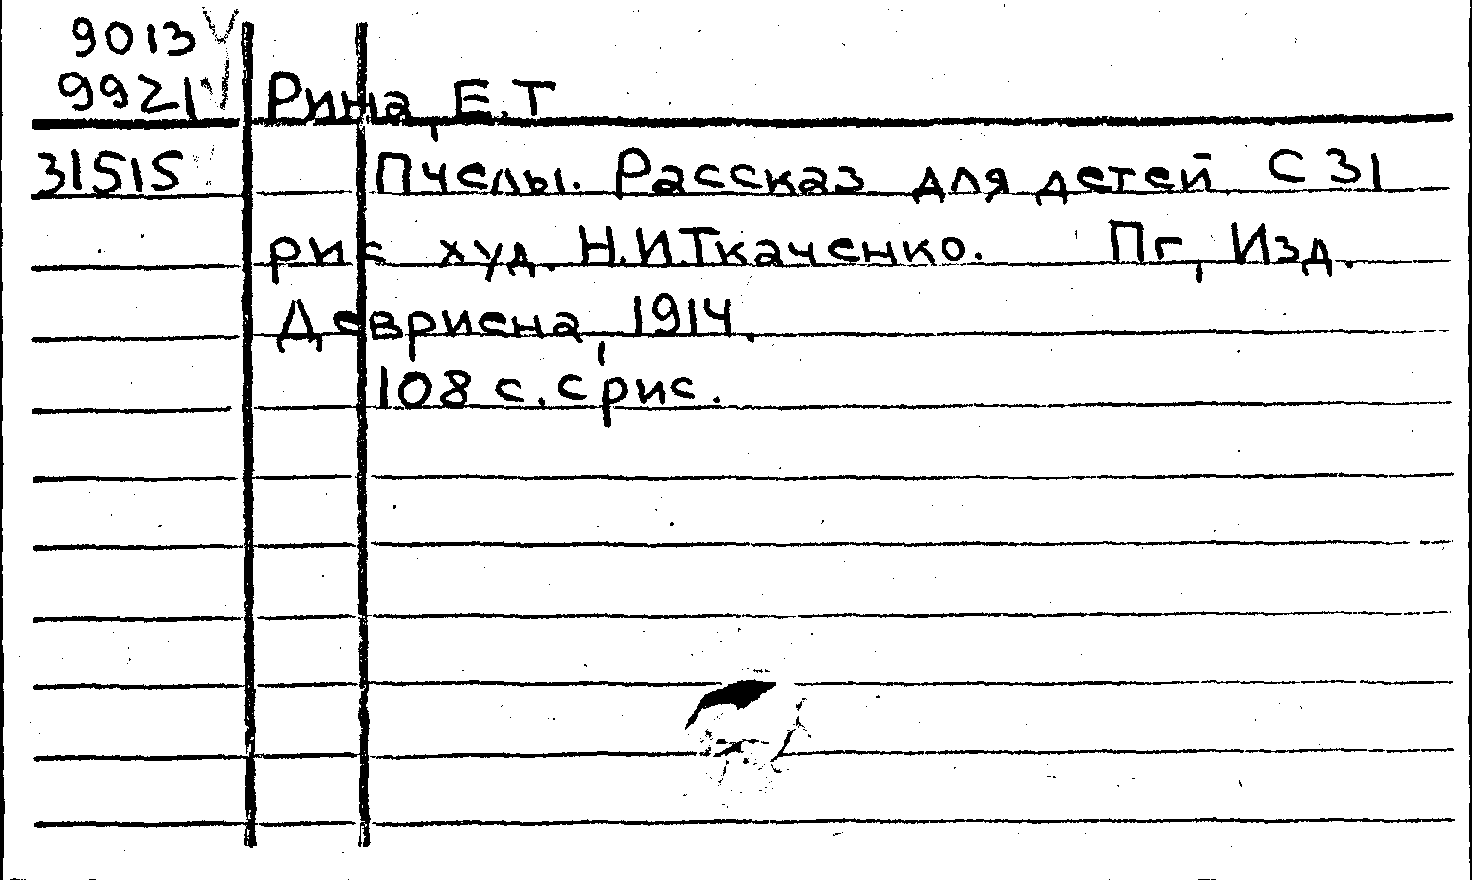 9013
9921 Рина, Е.Т
31515 Пчелы. Рассказ для детей С 31
рис худ. Н.И.Ткаченко. Пг, Изд.
Девриена, 1914.
108 с. с рис.